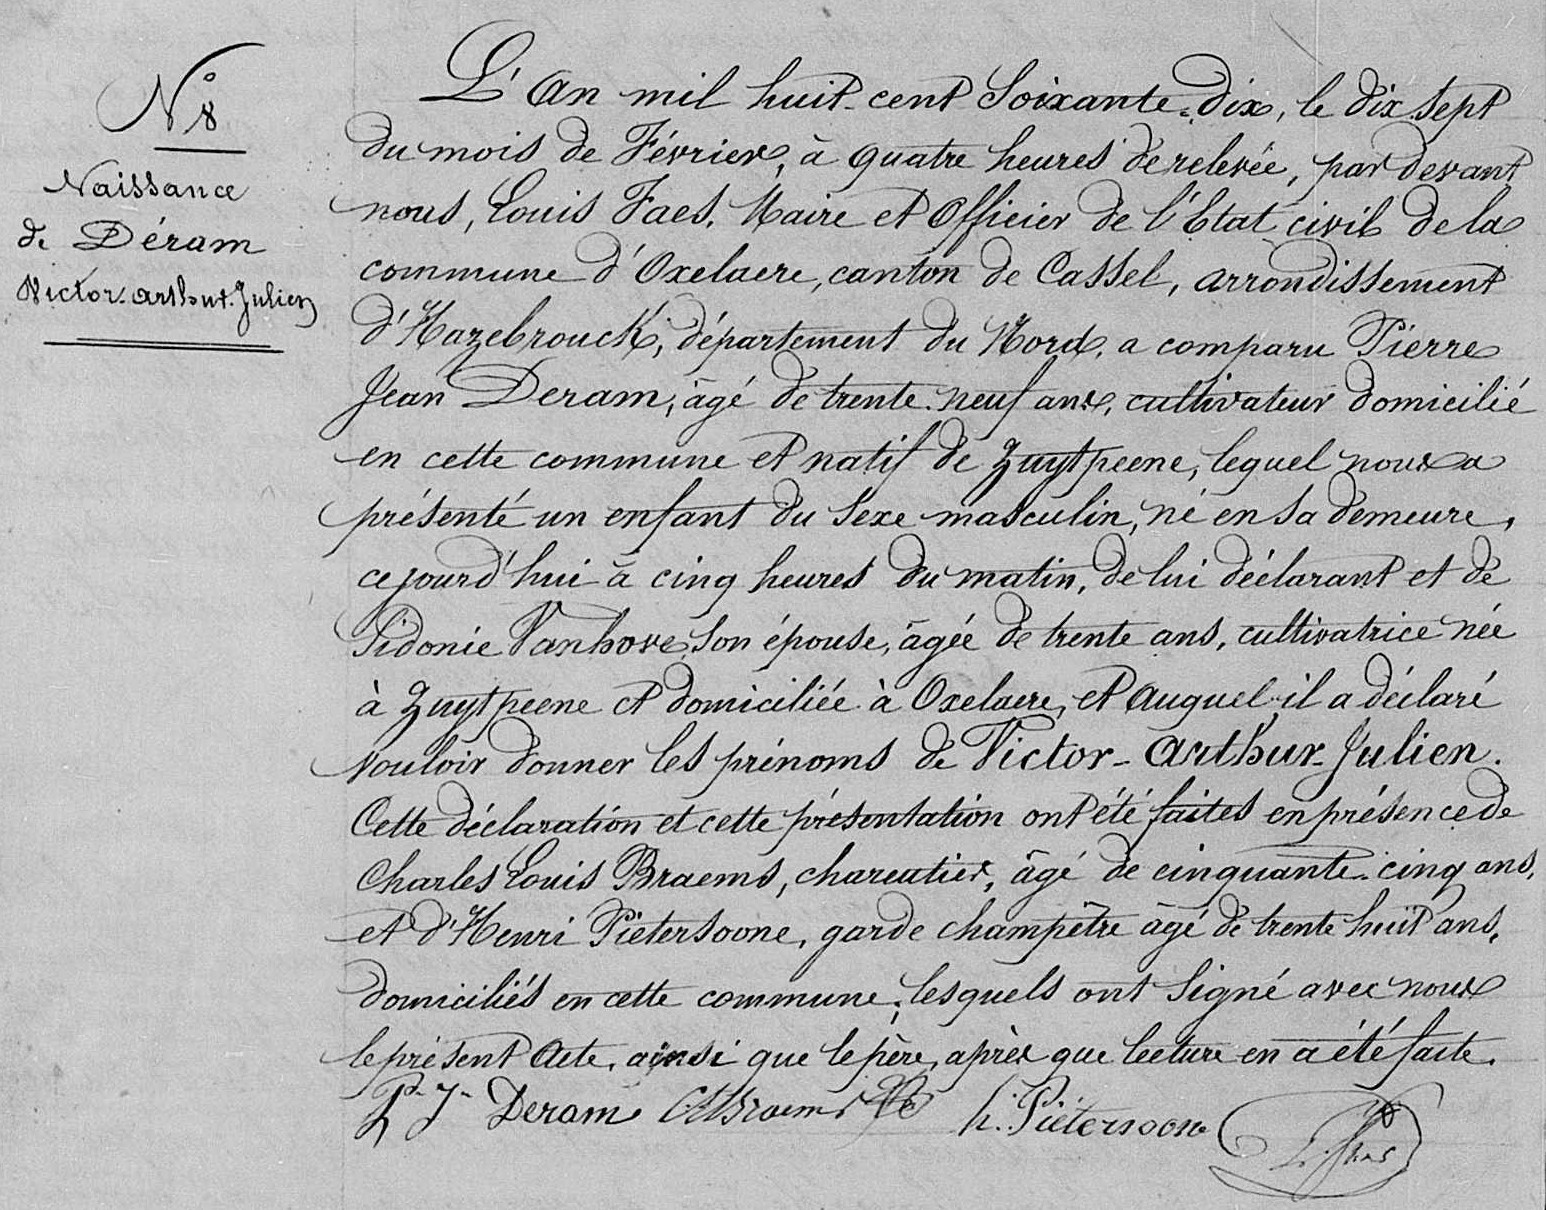 N° 8
Naissance
de Déram
Victor-Arthur-Julien
L'An mil huit-cent Soixante-dix, le dix sept
du mois de Février, à quatre heures de relevée, par devant
nous, Louis Faes, Maire et Officier de l'Etat civil de la
commune d'Oxelaere, canton de Cassel, arrondissement
d'Hazebrouck, département du Nord, a comparu Pierre
Jean Deram, âgé de trente-neuf ans, cultivateur domicilié
en cette commune et natif de Zuytpeene, lequel nous a
présenté un enfant du Sexe masculin, né en sa demeure,
cejourd'hui à cinq heures du matin, de lui déclarant et de
Sidonie Vanhove, Son épouse, âgée de trente ans, cultivatrice née
à Zuytpeene et domiciliée à Oxelaere, et auquel il a déclaré
vouloir donner les prénoms de Victor-Arthur-Julien.
Cette déclaration et cette présentation ont été faites en présence de
Charles Louis Braems, charcutier, âgé de cinquante-cinq ans,
et d'Henri Pietersoone, garde champêtre âgé de trente huit ans,
domiciliés en cette commune, lesquels ont Signé avec nous
le présent Acte, ainsi que le père, après que lecture en a été faite.
P. J. Deram Ch Braems h. Pietersoone L. Faes